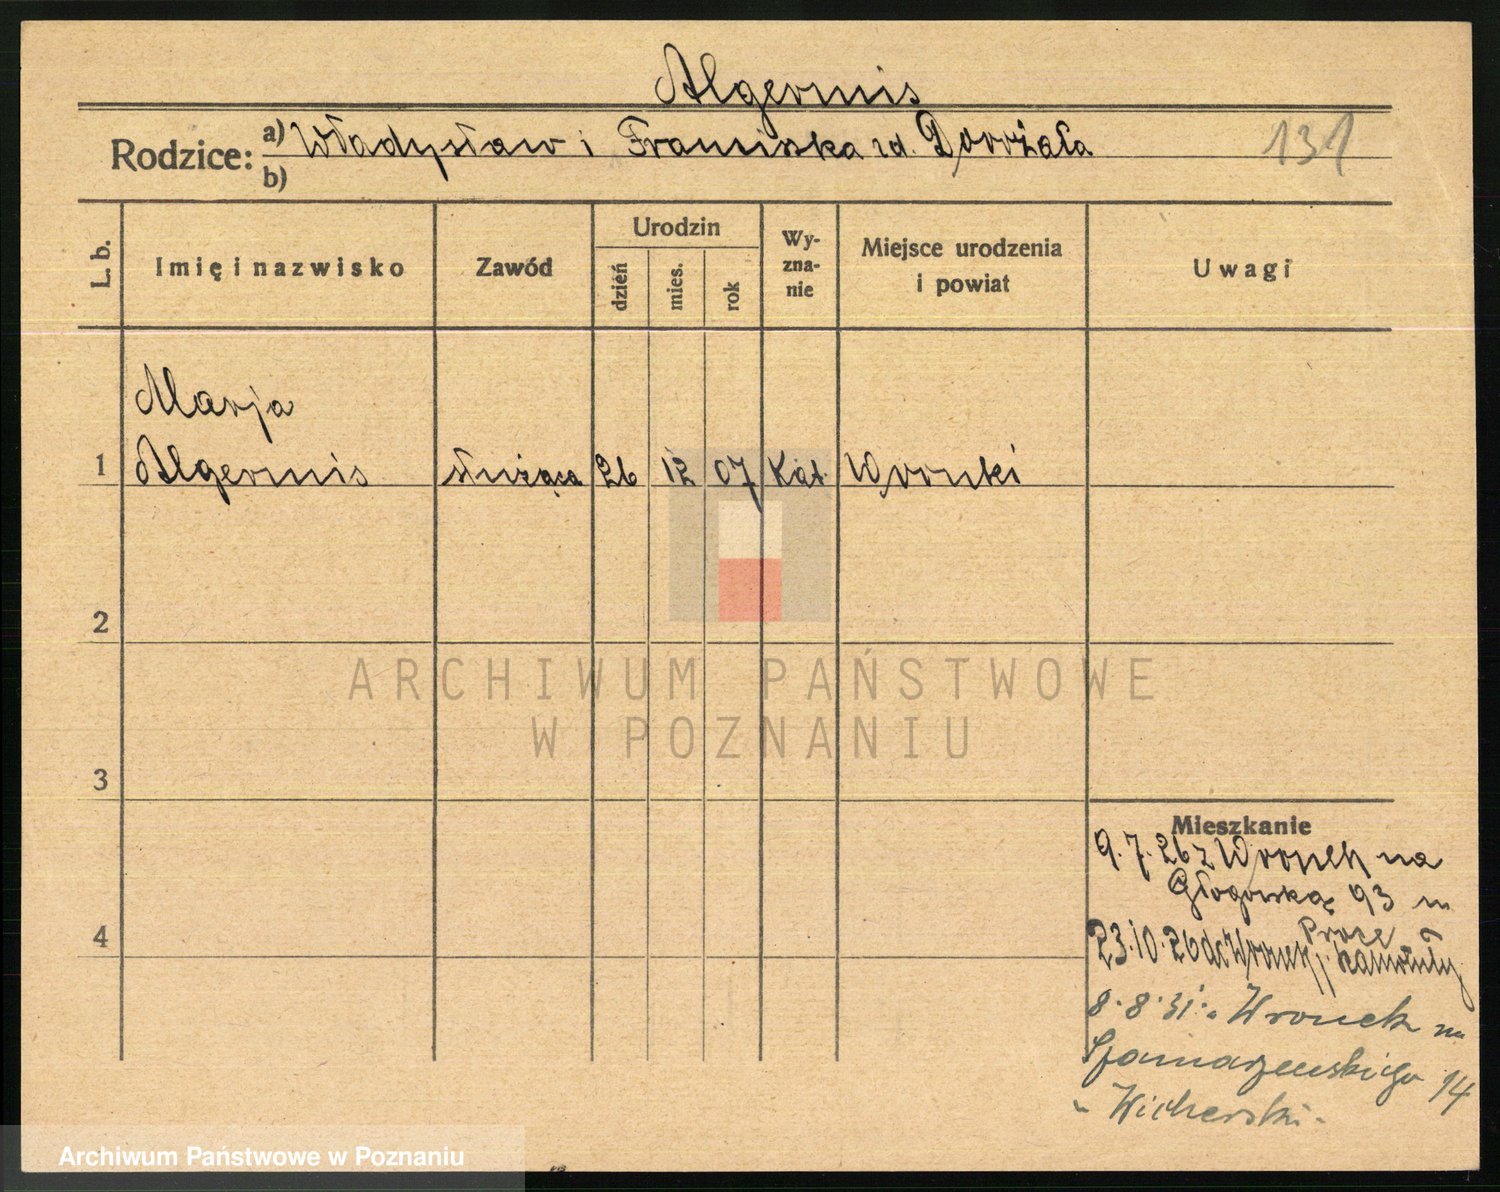 Algermis
Rodzice: a) Władysław i Franciszka rd. Dorożała
b)
131
L. b.
Imię i nazwisko
Zawód
Urodzin
dzień
mies.
rok
Wy-
zna-
nie
Miejsce urodzenia
i powiat
Uwagi
Marja
1 Algermis służąca 26 12 07 Kat. Wronki
2
3
4
ARCHIWUM PAŃSTWOWE
W POZNANIU
Mieszkanie
9.7.26 z Wronek na
Głogowską 93 m
23.10.26 do Wronek
8.8.31 Wronek na
14
Wicherski
Archiwum Państwowe w Poznaniu